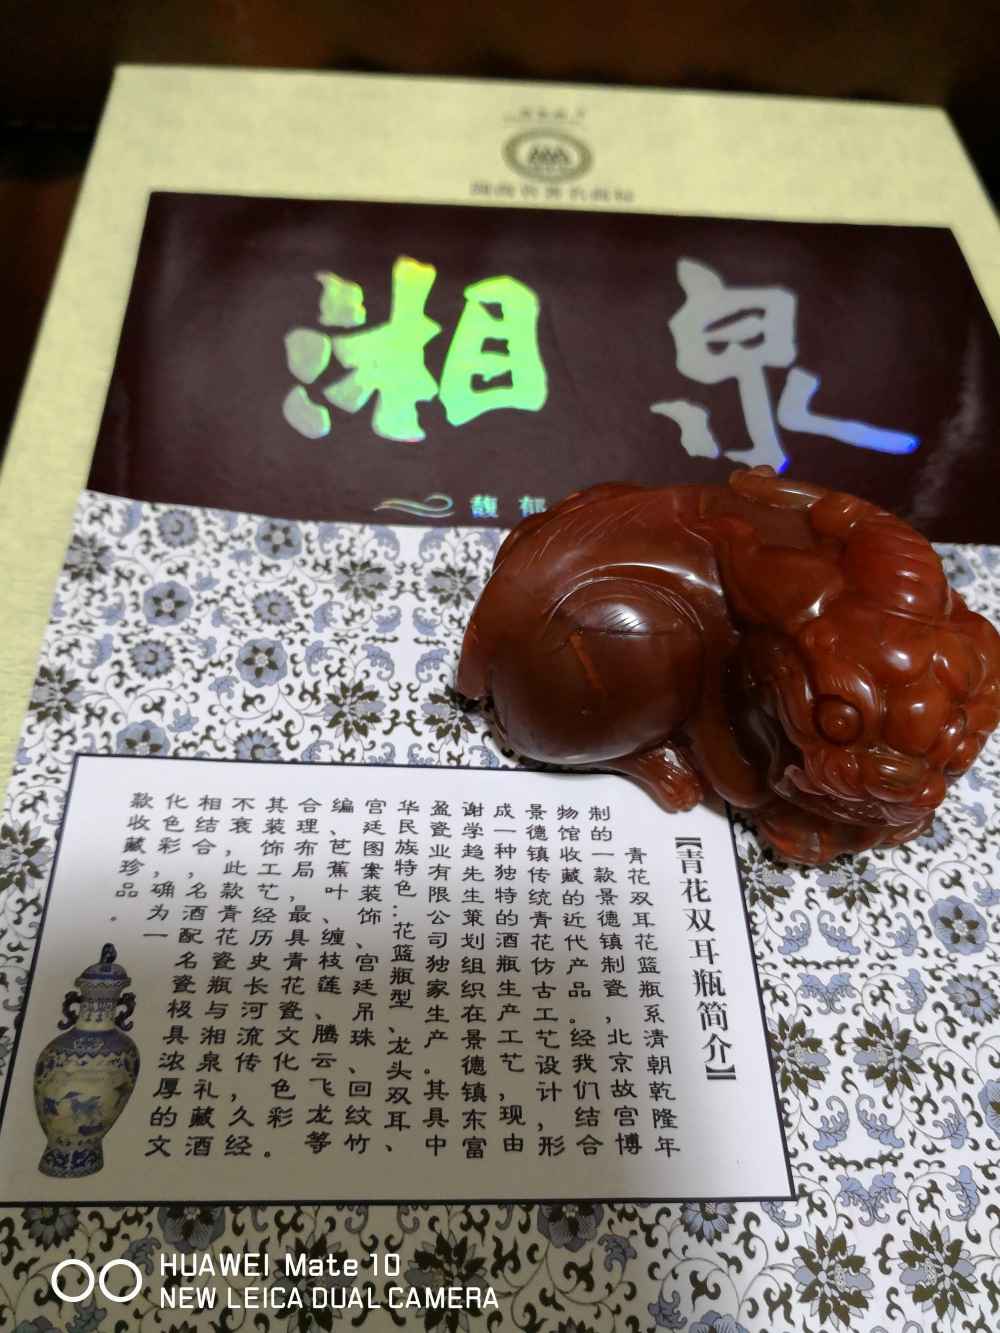 湖南省著名商标
湘泉
馥郁
【青花双耳瓶简介】
青花双耳花篮瓶,系清朝乾隆年
制的一款景德镇制瓷,北京故宫博
物馆收藏的近代产品。经我们结合
景德镇传统青花仿古工艺设计,形
成一种独特的酒瓶生产工艺,现由
谢学趋先生策划组织在景德镇东富
盈瓷业有限公司独家生产。其具中
华民族特色:花篮瓶型、龙头双耳、
宫廷图案装饰、宫廷吊珠、回纹竹
编、芭蕉叶、缠枝莲、腾云飞龙等
合理布局,最具青花瓷文化色彩。
其装饰工艺,经历史长河流传,久经
不衰,此款青花瓷瓶与湘泉礼藏酒
相结合,名酒配名瓷极具浓厚的文
化色彩,确为一
款收藏珍品。
HUAWEI Mate 10
NEW LEICA DUAL CAMERA